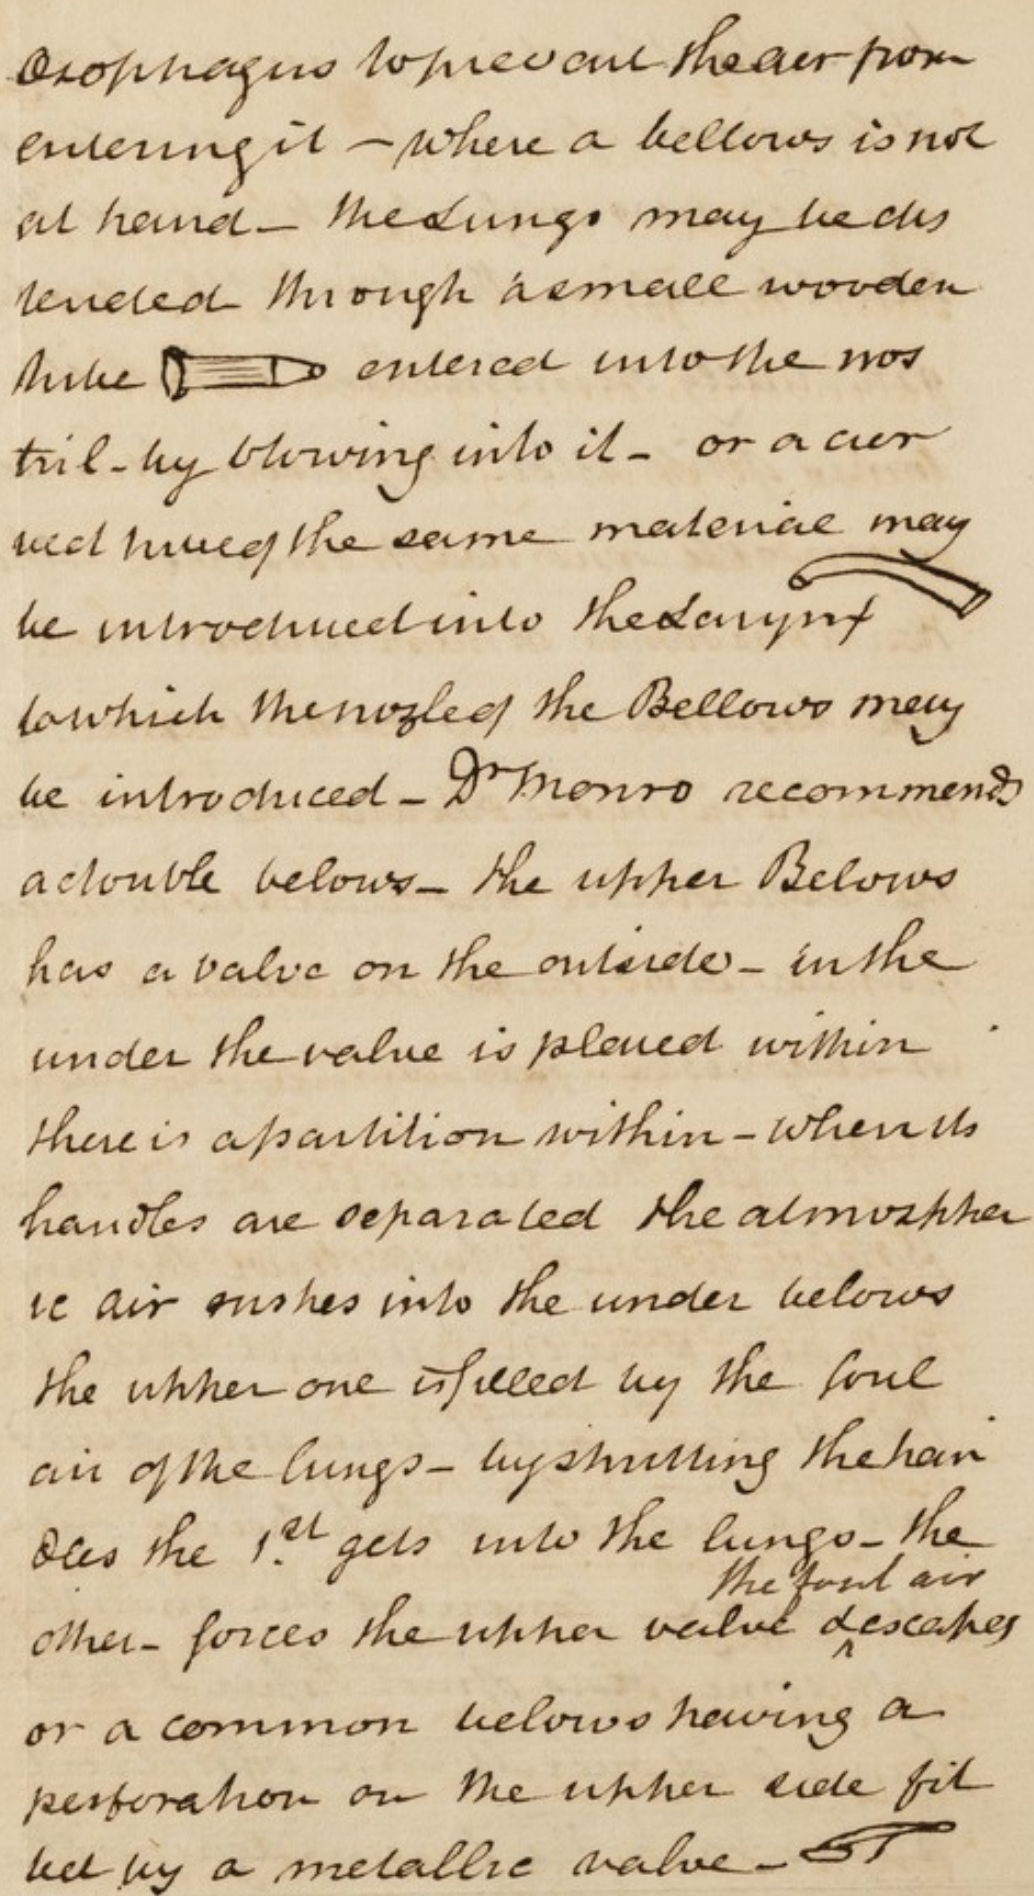 Œsophagus to prevent the air from
entering it – where a bellows is not
at hand – the Lungs may be dis
tended through a small wooden
tube entered into the nos
tril – by blowing into it – or a cur
ved tube of the same material may
be introduced into the Larynx
to which the nozle of the Bellows may
be introduced – Dr Monro recommends
a double belows – the upper Belows
has a valve on the outside – in the
under the valve is placed within
there is a partition within – when its
handles are separated the atmospher
ic air rushes into the under belows
the upper one is filled by the foul
air of the lungs – by shutting the han
dles the 1st gets into the lungs – the
the foul air
other – forces the upper valve & escapes
or a common belows having a
perforation on the upper side fit
ted by a metallic valve –